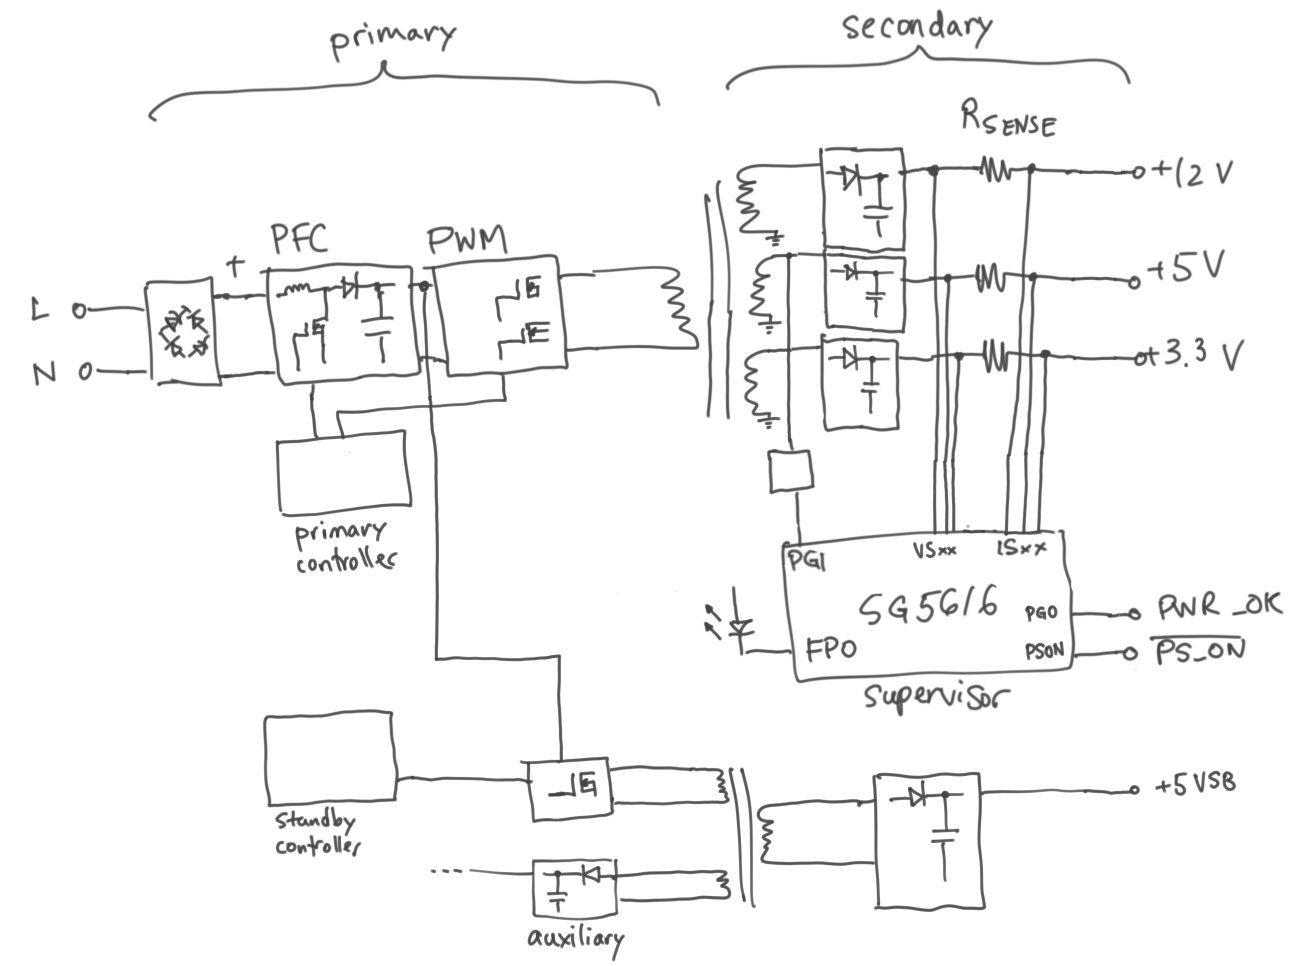 primary
secondary
RSENSE
+12 V
PFC
PWM
+
L
N
+5V
+3.3 V
primary
controller
PGI
VSxx
ISxx
SG5616
PGO
PWR_OK
FPO
PSON
PS_ON
supervisor
standby
controller
+5VSB
auxiliary